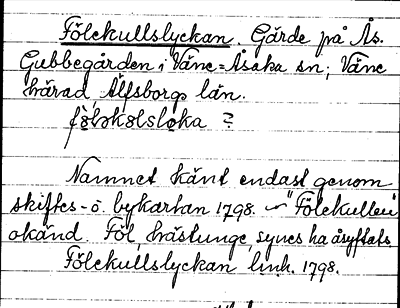 Fölekullslyckan. Gärde på Ås.
Gubbegården i Väne-Åsaka sn, Väne
härad, Älfsborgs län.
fø̨lǝkølsløka ?
Namnet känt endast genom
skiftes- o. bykartan 1798. — "Fölekullen"
okänd. Föl, hästunge, synes ha åsyftats
Fölekullslyckan lmh. 1798.